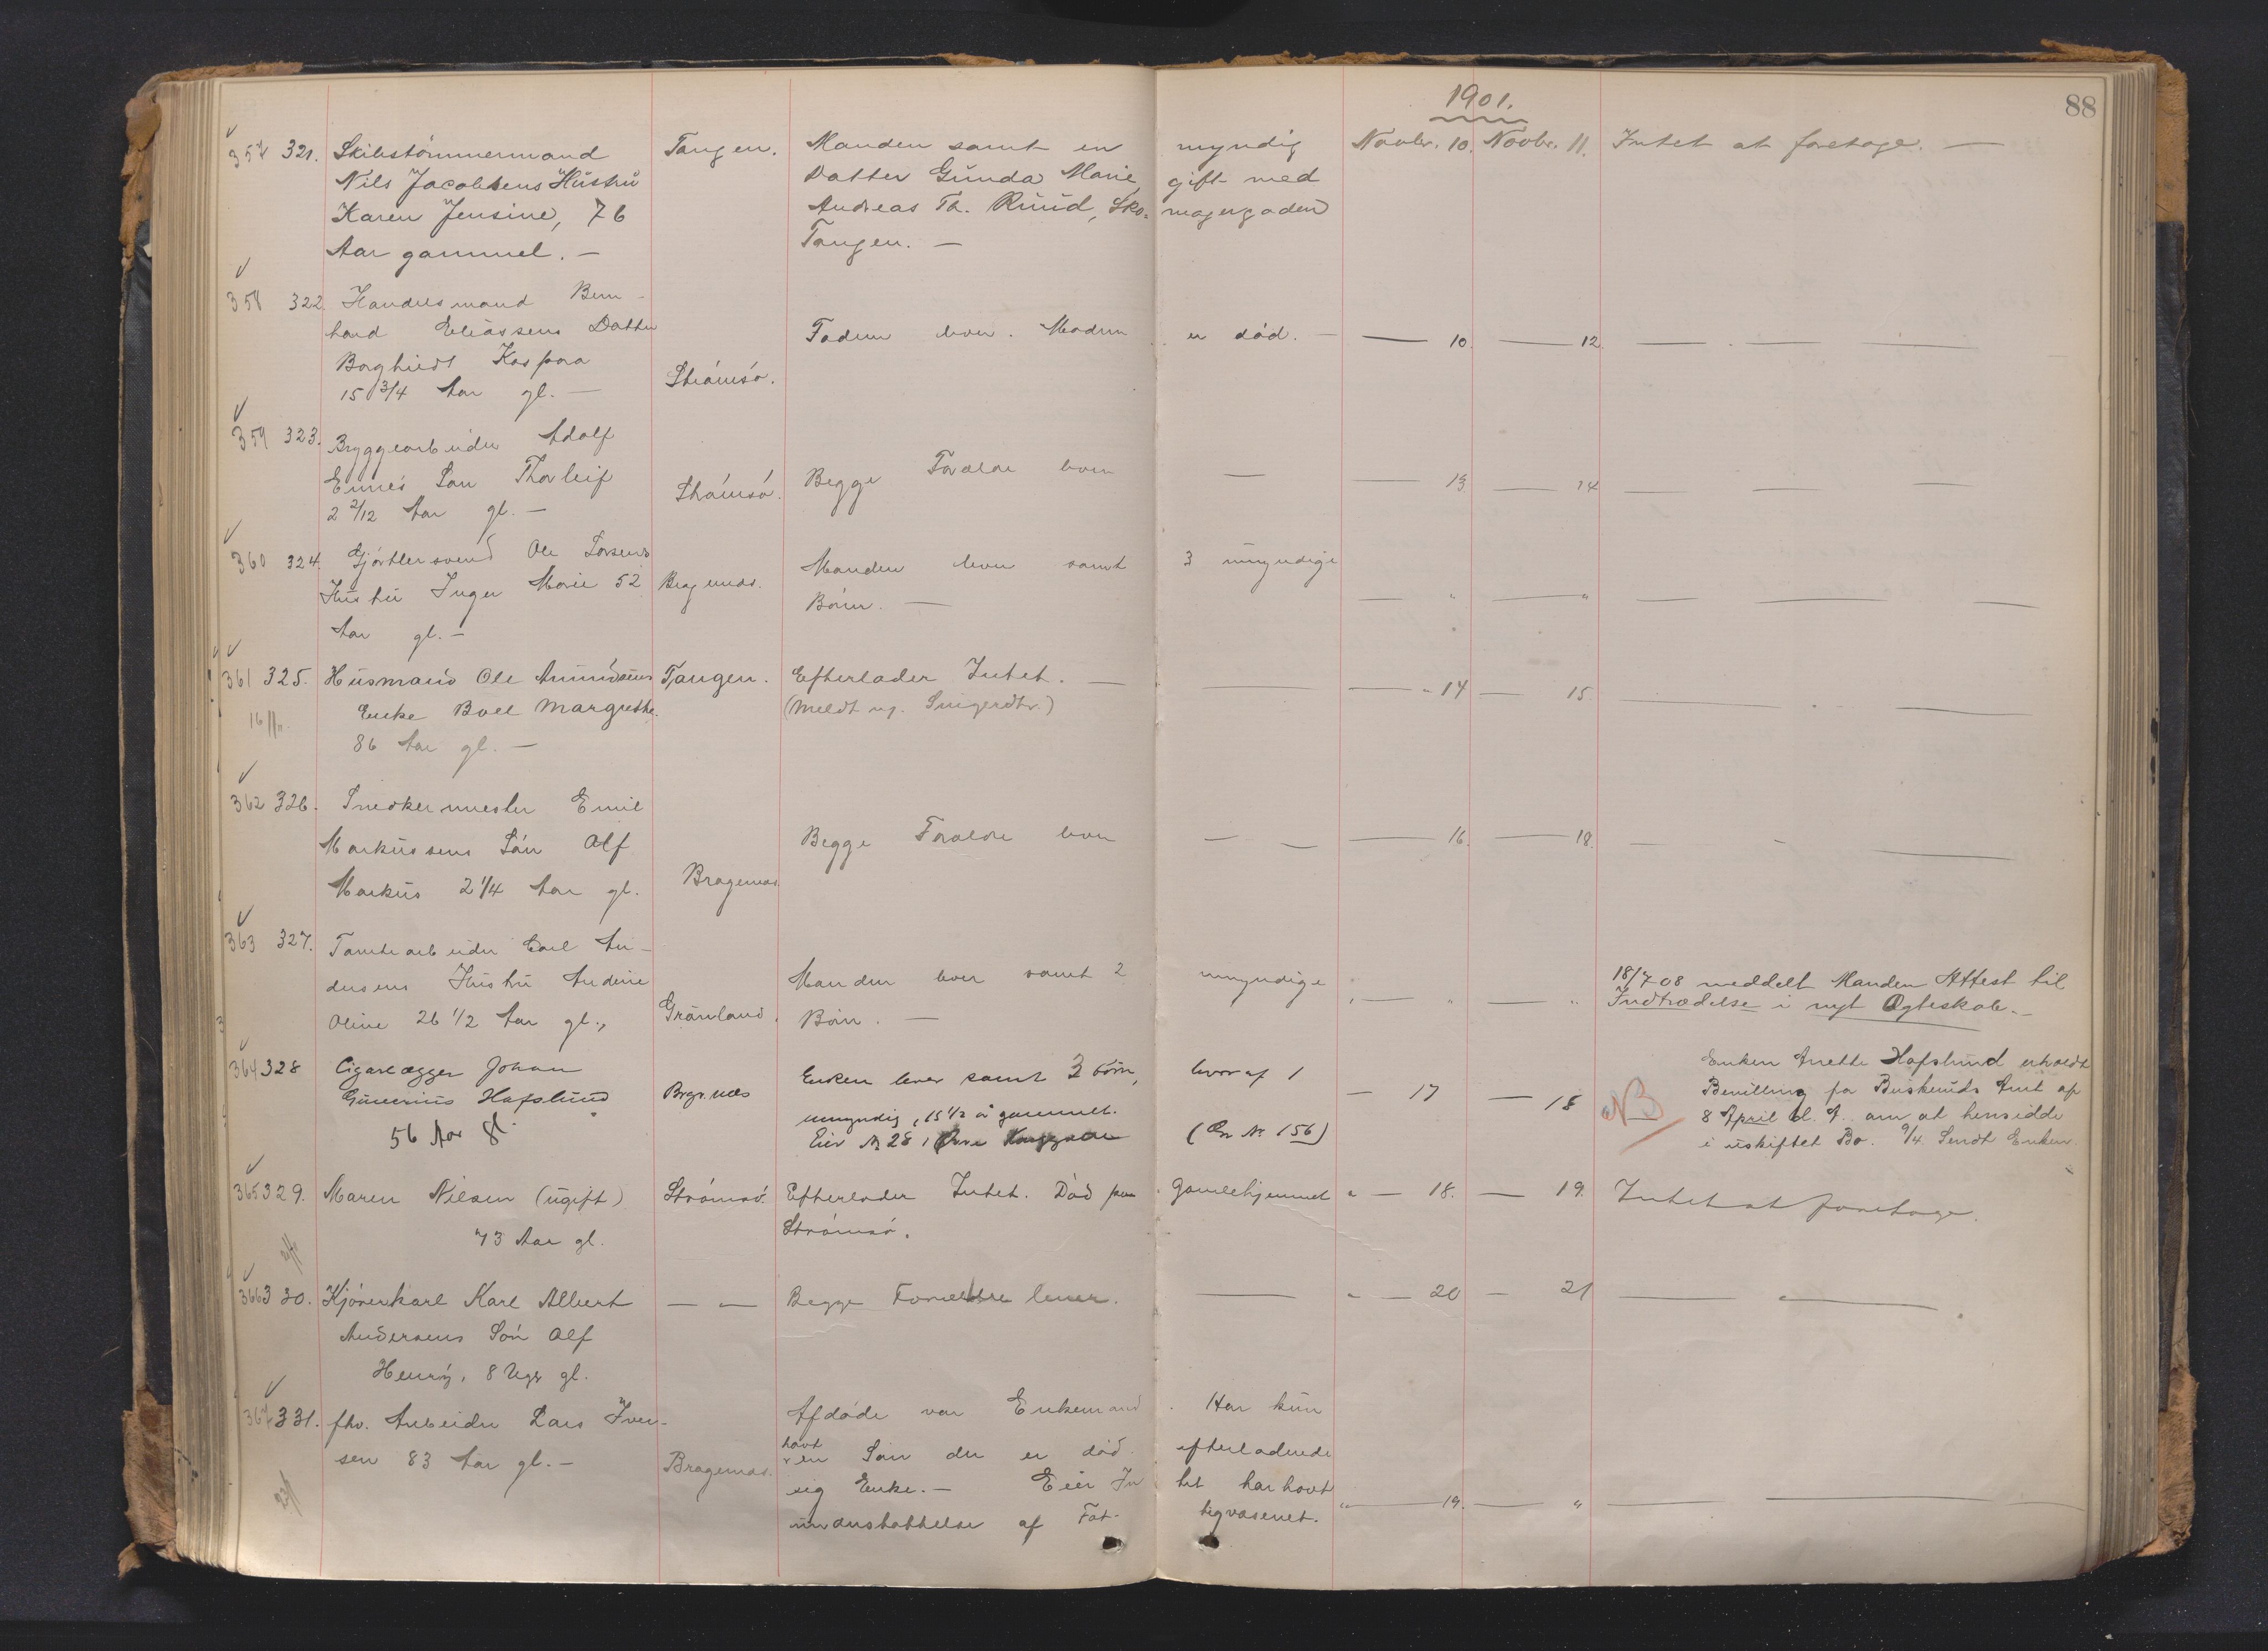 1901.
88
357 321. Skibstömmermand Tangen. Manden samt en myndig Novbr. 10. Novbr. 11. Intet at foretage. —
Nils Jacobsens Hustru Datter Gunda Marie gift med
Karen Jensine, 76 Andreas Th. Ruud, Sko= magergaden
Aar gammel. — Tangen. —
358 322. Handelsmand Bern-
hard Eliassens Datter Faderen lever. Moderen er död. — — 10. — 12. — — —
Borghild Kaspara
15 3/4 Aar gl. — Strömsö.
359 323. Bryggearbeider Adolf
Ennes Sön Thorleif Strömsö. Begge Forældre lever — — 13. — 14 — — —
2 2/12 Aar gl. —
360 324. Gjörtlersvend Ole Larsens Manden lever samt 3 umyndige
Hustru Inger Marie 52 Bragernæs. Börn. — — " — " — — —
Aar gl. —
361 325. Husmand Ole Amundsens Tangen. Efterlader Intet. — — — " 14 — 15. — " —
16/11. Enke Boel Margrethe. (Meldt af Svigerdtr.)
86 Aar gl. —
362 326. Snedkermester Emil
Markussens Sön Alf Begge Forældre lever — — — 16. — 18. — " —
Markus 2 1/4 Aar gl. Bragernæs.
363 327. Tomtearbeider Carl An-
dersens Hustru Andrine Manden lever samt 2 umyndige " — " — " 18/7 08 meddelt Manden Attest til
Oline 26 1/2 Aar gl., Grönland. Börn. — Indtrædelse i nyt Ægteskab. —
364 328 Cigarlægger Johan Enken lever samt 3 börn, hvoraf 1 Enken Anette Hafslund erholdt
Gunerius Hafslund Brgr.næs umyndig, 15 1/2 år gammel. — 17 — 18 NB Bevilling fa Buskeruds Amt af
56 Aar gl. Eier № 28 i Övre (En № 156) 8 April d. A. om at hensidde
i uskiftet Bo. 9/4. Sendt Enken
365 329. Maren Nilsen (ugift) Strömsö. Efterlader Intet. Död paa Gamlehjemmet " — 18. — 19. Intet at foretage.
73 Aar gl. Strömsö.
366 330. Kjörerkarl Karl Albert — " — Begge Forældre lever. — " — 20 — 21 — " —
Andersens Sön Alf
Henry, 8 Uger gl.
367 331. fhv. Arbeider Lars Iver- Afdöde var Enkemand. Har kun
sen 83 Aar gl. — Bragernæs. havt en Sön der er död. efterladende
sig Enke. — Eier In tet har havt " — 19. — " — —
understöttelse af Fat- tigvæsenet.